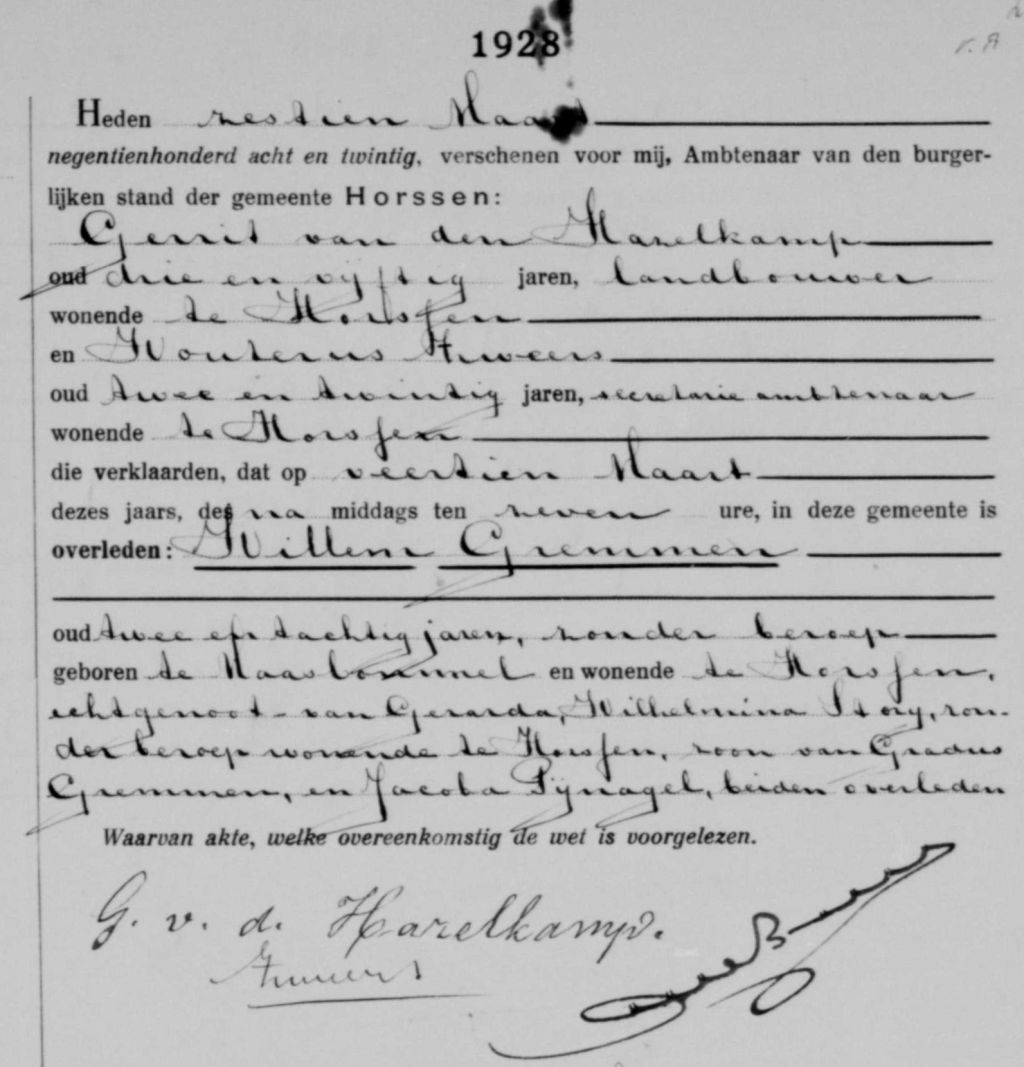 1928
Heden zestien Maart
negentienhonderd acht en twintig, verschenen voor mij, Ambtenaar van den burger-
lijken stand der gemeente Horssen:
Gerrit van den Hazelkamp
oud drie en vijftig jaren, landbouwer
wonende te Horssen
en Wouterus
oud twee en twintig jaren, secretarie ambtenaar
wonende te Horssen
die verklaarden, dat op veertien Maart
dezes jaars, des na middags ten zeven ure, in deze gemeente is
overleden: Willem Gremmen
oud twee en tachtig jaren, zonder beroep
geboren te Maasbommel en wonende te Horssen,
echtgenoot van Gerarda, Wilhelmina Story, zon-
der beroep wonende te Horssen, zoon van Gradus
Gremmen, en Jacoba Pijnagel, beiden overleden
Waarvan akte, welke overeenkomstig de wet is voorgelezen.
G. v. d. Hazelkamp.